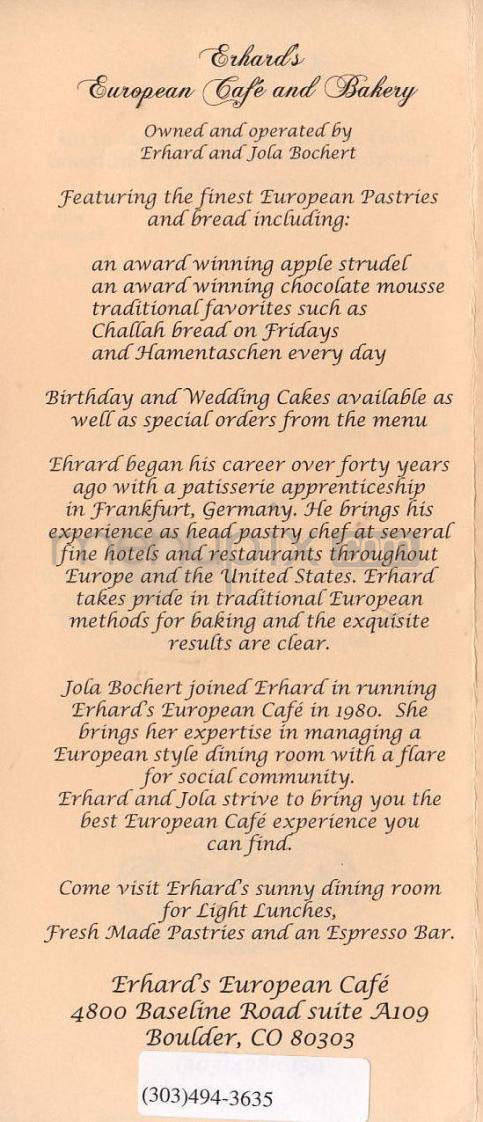 Erhard's
European Café and Bakery
Owned and operated by
Erhard and Jola Bochert
Featuring the finest European Pastries
and bread including:
an award winning apple strudel
an award winning chocolate mousse
traditional favorites such as
Challah bread on Fridays
and Hamentaschen every day
Birthday and Wedding Cakes available as
well as special orders from the menu
Ehrard began his career over forty years
ago with a patisserie apprenticeship
in Frankfurt, Germany. He brings his
experience as head pastry chef at several
fine hotels and restaurants throughout
Europe and the United States. Erhard
takes pride in traditional European
methods for baking and the exquisite
results are clear.
Jola Bochert joined Erhard in running
Erhard's European Café in 1980. She
brings her expertise in managing a
European style dining room with a flare
for social community.
Erhard and Jola strive to bring you the
best European Café experience you
can find.
Come visit Erhard's sunny dining room
for Light Lunches,
Fresh Made Pastries and an Espresso Bar.
Erhard's European Café
4800 Baseline Road suite A109
Boulder, CO 80303
(303)494-3635